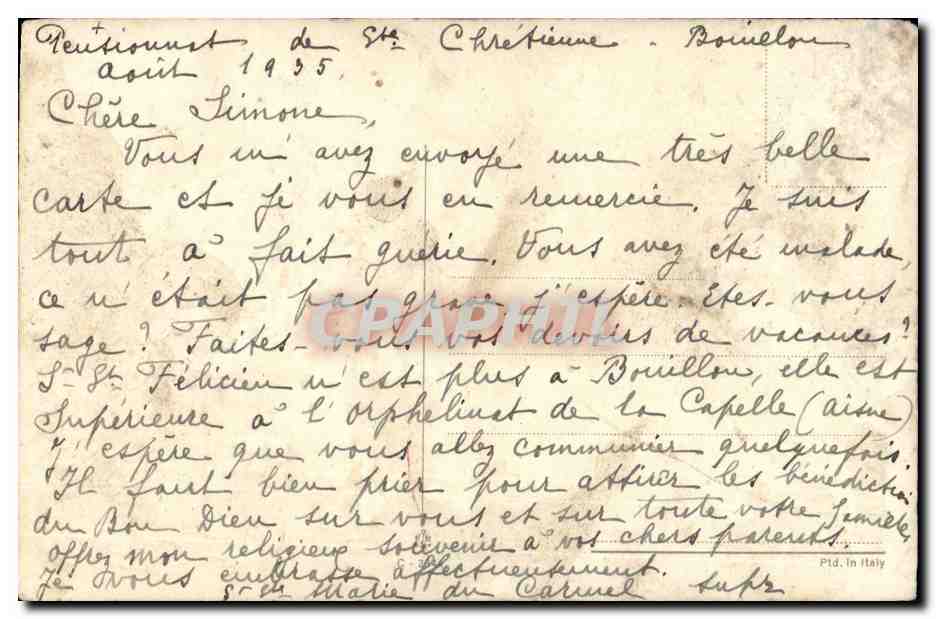 Pensionnat de Ste Chrétienne - Bouillon
Août 1935.
Chère Simone,
Vous m'avez envoyé une très belle
carte et je vous en remercie. Je suis
tout à fait guérie. Vous avez été malade,
ce n'était pas grave j'espère. Etes-vous
sage? Faites-vous vos devoirs de vacances?
Sr St Félicien n'est plus à Bouillon, elle est
Supérieure à l'Orphelinat de la Capelle (Aisne)
J'espère que vous allez communier quelquefois.
Il faut bien prier pour attirer les bénédictions
du Bon Dieu sur vous et sur toute votre famille,
offrez mon religieux souvenir à vos chers parents.
Je vous embrasse affectueusement.
Sr Ste Marie du Carmel supr
CPAPHIL
Ptd. in Italy